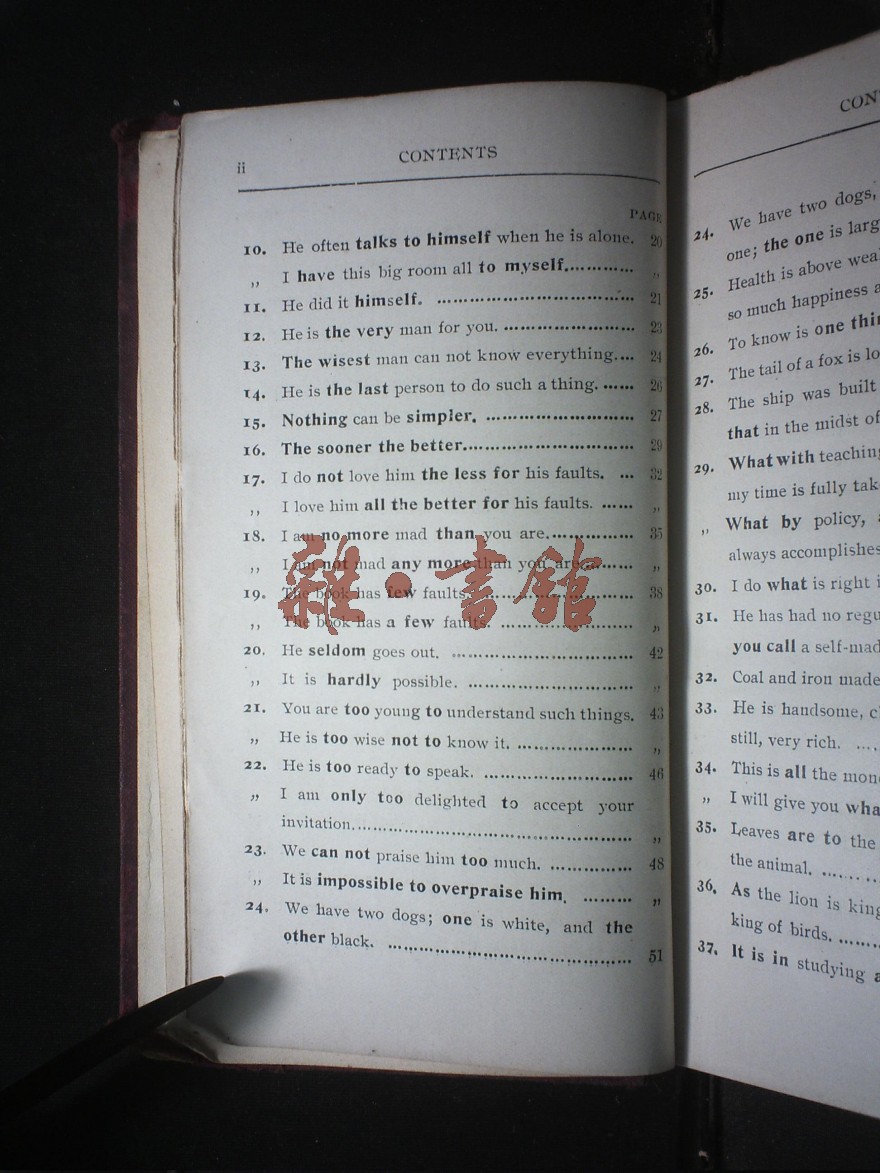 ii
CONTENTS
PAGE
10. He often talks to himself when he is alone. 20
„ I have this big room all to myself............. „
11. He did it himself. .................................. 21
12. He is the very man for you. ........................ 23
13. The wisest man can not know everything.... 24
14. He is the last person to do such a thing. ...... 26
15. Nothing can be simpler. ........................... 27
16. The sooner the better............................... 29
17. I do not love him the less for his faults. ... 32
„ I love him all the better for his faults. ...... „
18. I am no more mad than you are................ 35
„ I am not mad any more than you are......... „
19. The book has few faults. ........................... 38
„ The book has a few faults. ........................ „
20. He seldom goes out. ................................. 42
„ It is hardly possible. .............................. „
21. You are too young to understand such things. 43
„ He is too wise not to know it. ..................... „
22. He is too ready to speak. ........................... 46
„ I am only too delighted to accept your
invitation................................................ „
23. We can not praise him too much. ............... 48
„ It is impossible to overpraise him. ......... „
24. We have two dogs; one is white, and the
other black. .......................................... 51
CON
24. We have two dogs,
one; the one is larg
25. Health is above wea
so much happiness a
26. To know is one thin
27. The tail of a fox is lo
28. The ship was built
that in the midst of
29. What with teaching
my time is fully tak
„ What by policy,
always accomplishes
30. I do what is right i
31. He has had no regu
you call a self-mad
32. Coal and iron made
33. He is handsome, c
still, very rich. ....
34. This is all the mon
„ I will give you wha
35. Leaves are to the
the animal. ........
36. As the lion is king
king of birds. ........
37. It is in studying a
雜·書館